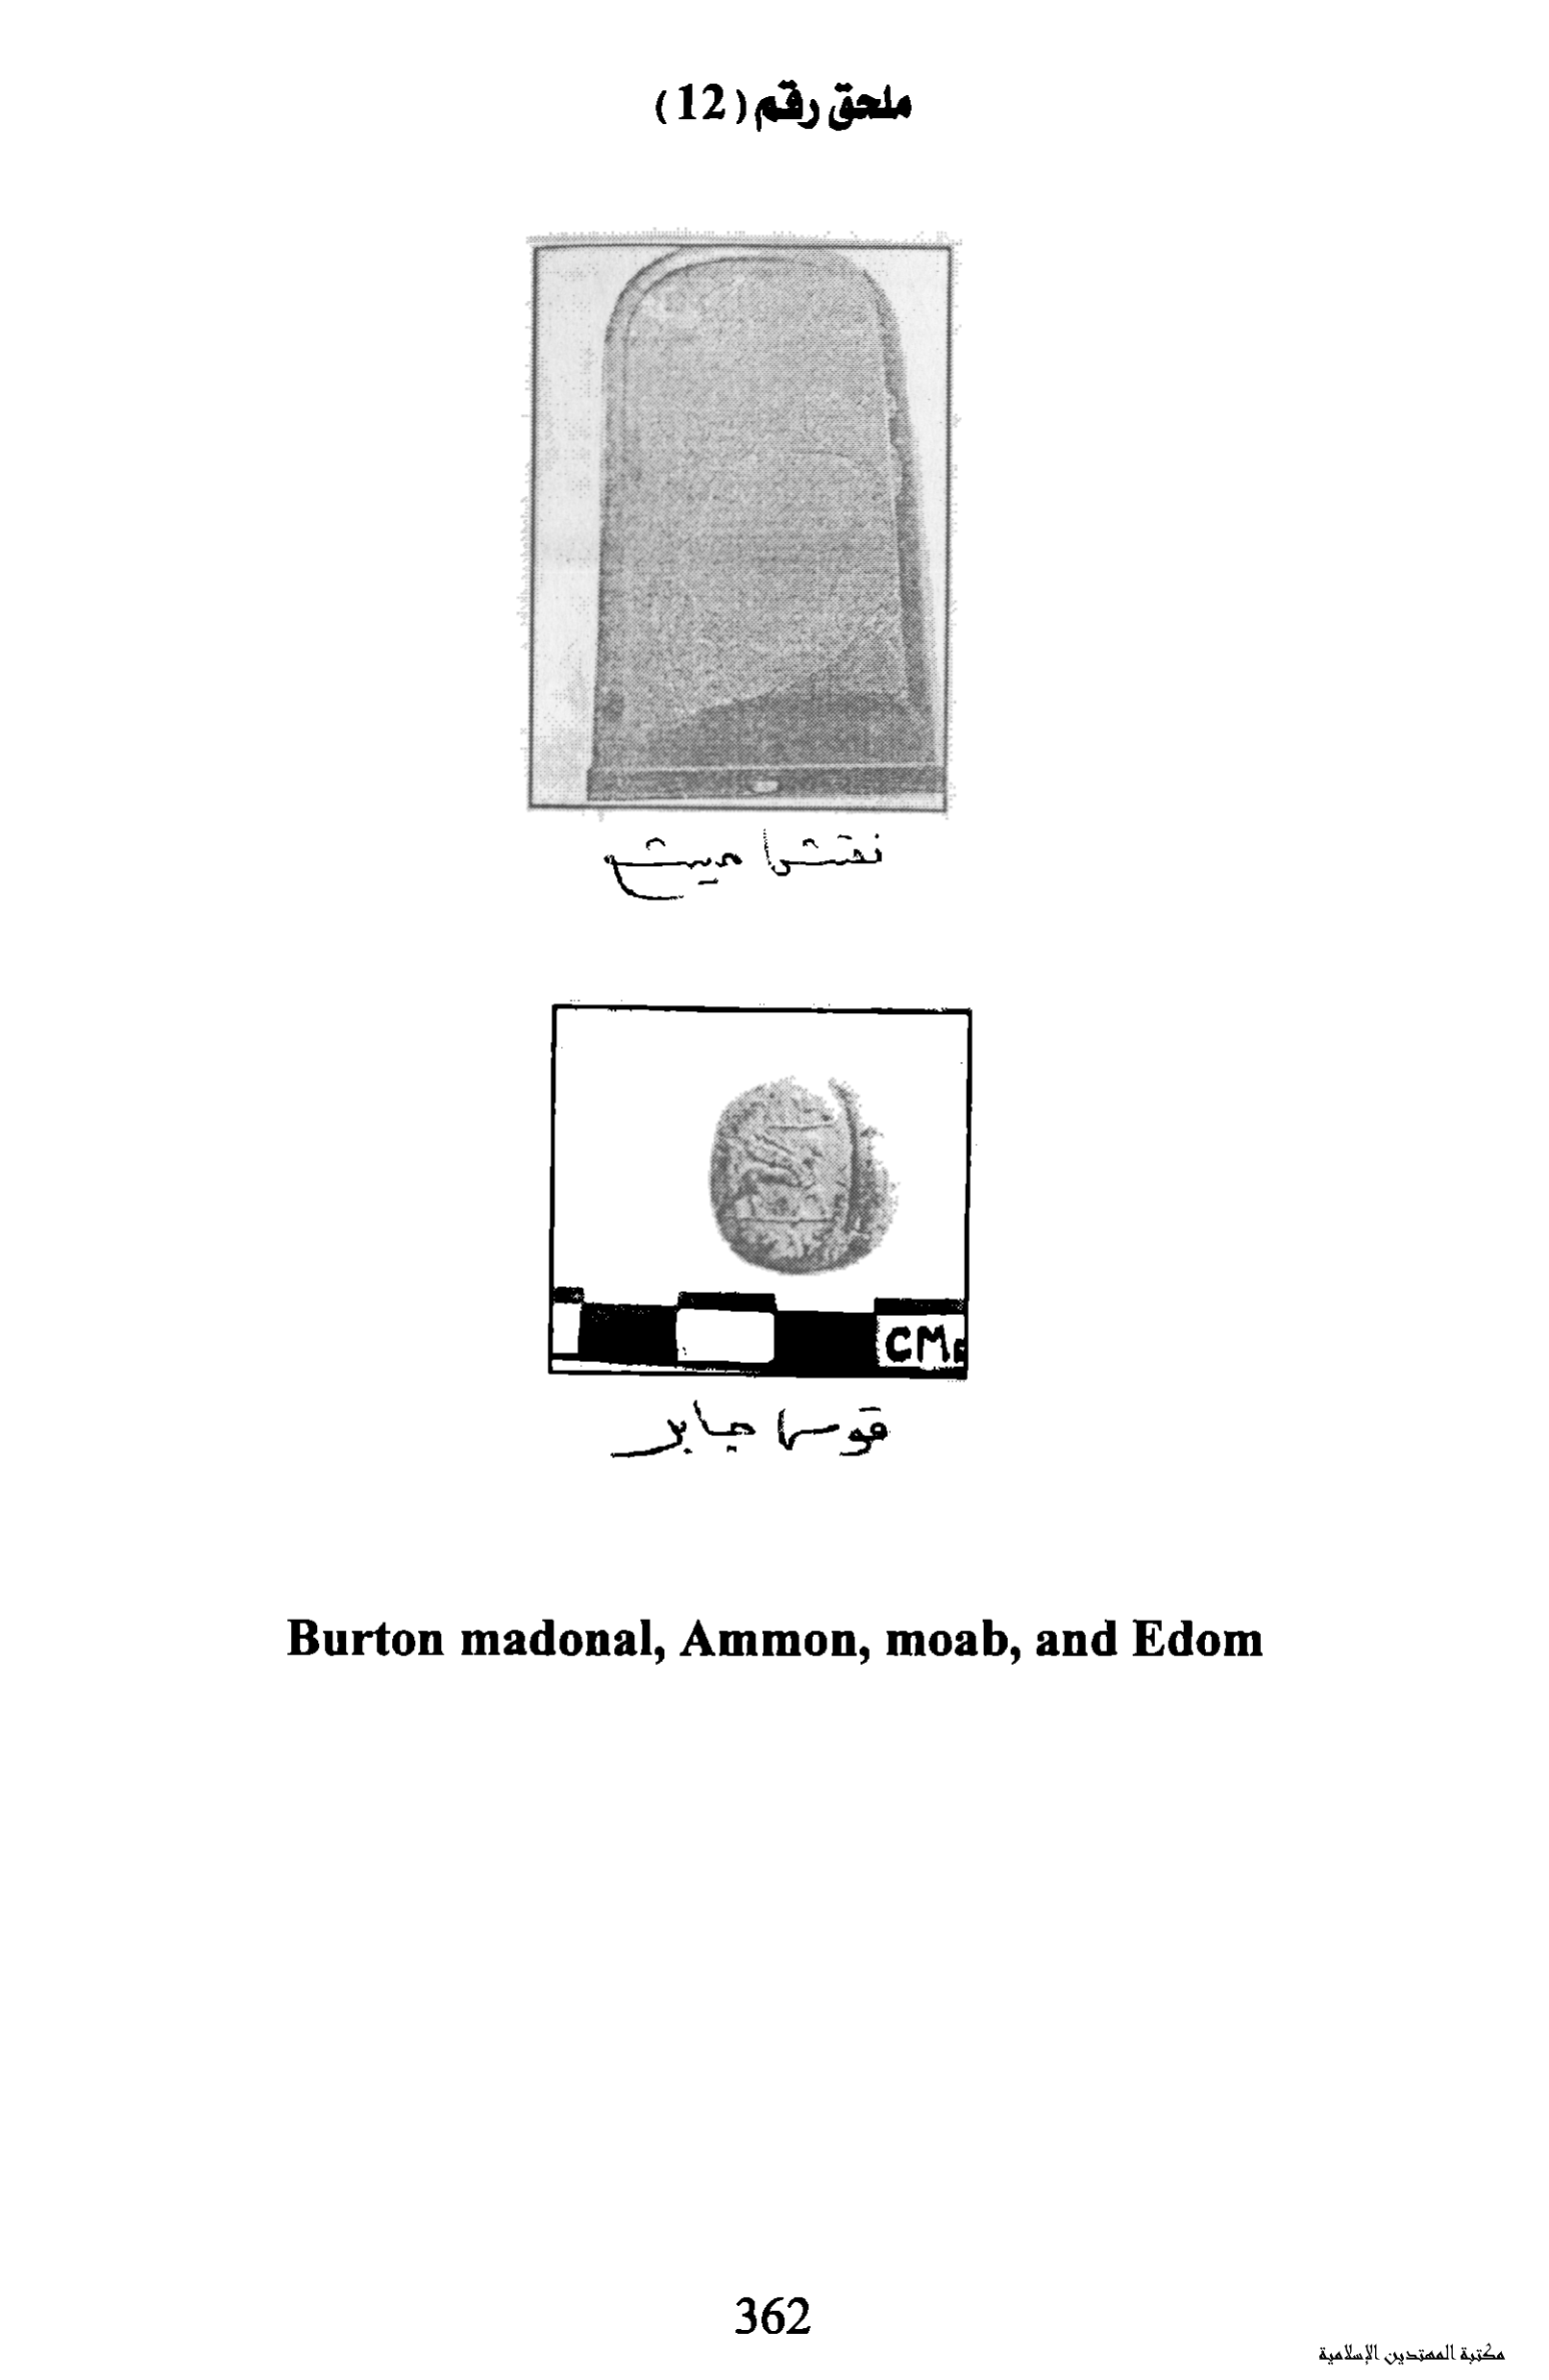 ملحق رقم (12)
نقش ميشع
CM
قوس جابر
Burton madonal, Ammon, moab, and Edom
362
مكتبة المهتدين الإسلامية